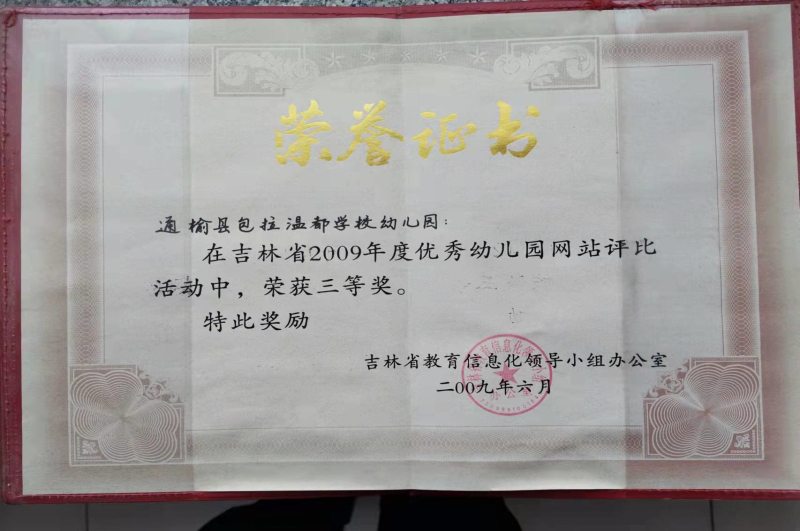 荣誉证书
通榆县包拉温都学校幼儿园：
在吉林省2009年度优秀幼儿园网站评比
活动中，荣获三等奖。
特此奖励
吉林省教育信息化领导小组办公室
二00九年六月